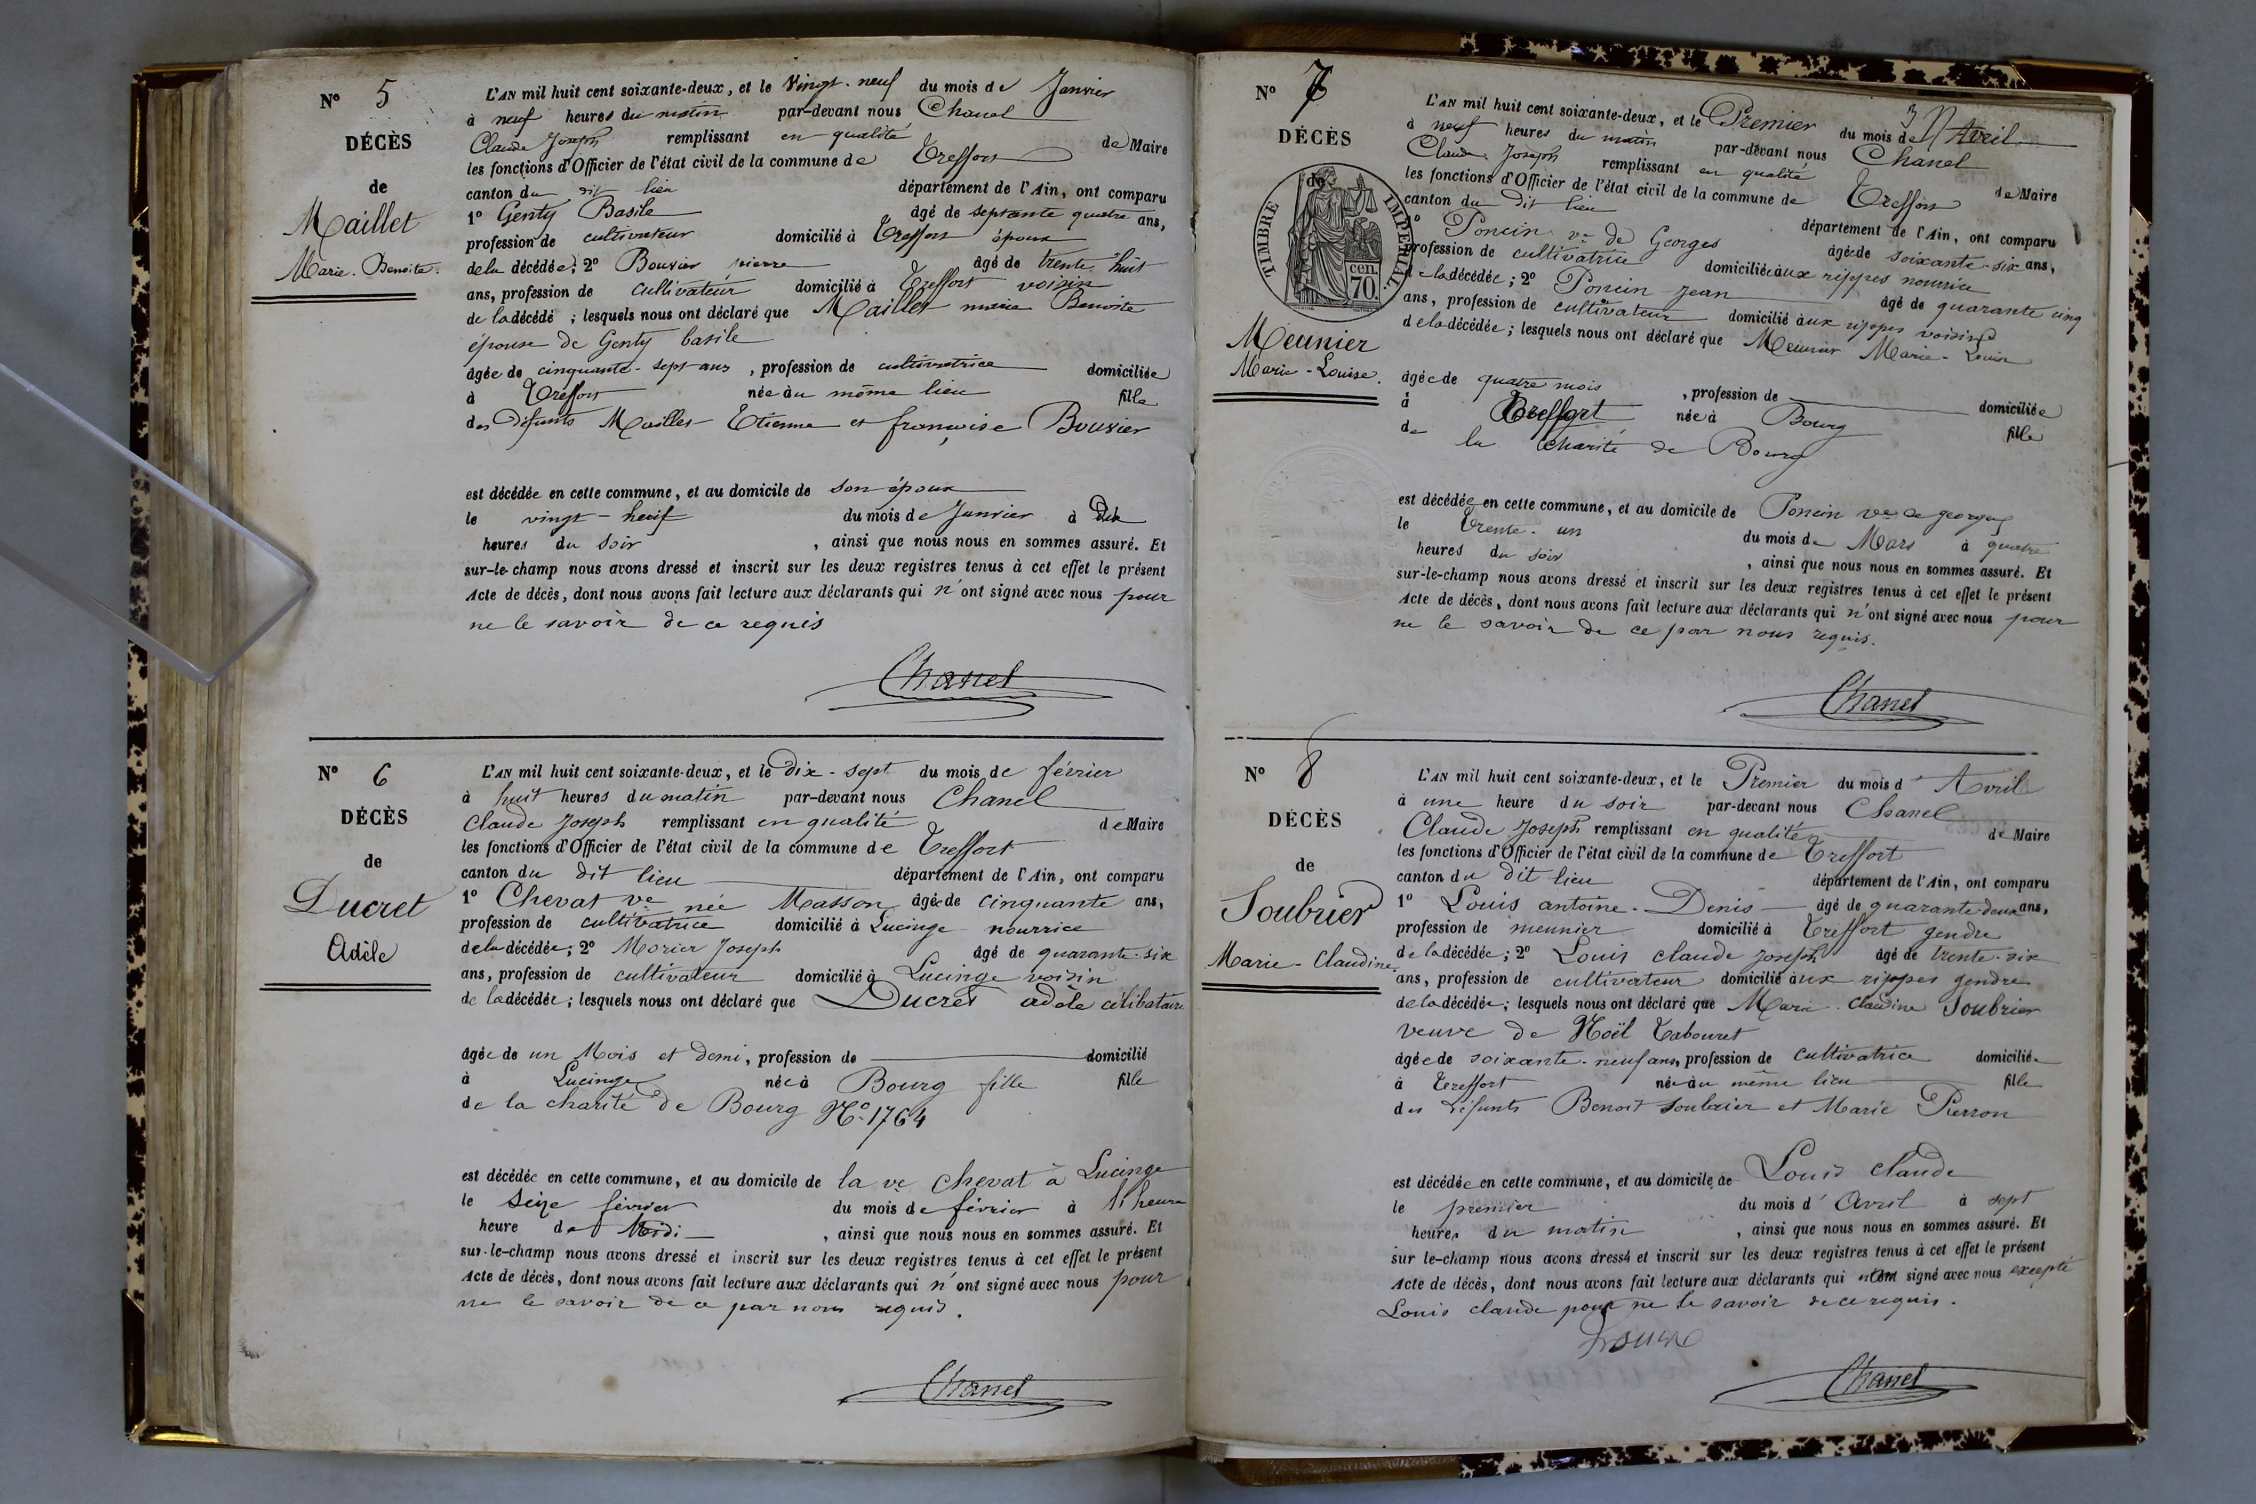 N° 5
DÉCÈS
de
Maillet
Marie-Benoite.
L'AN mil huit cent soixante-deux, et le Vingt-neuf du mois de Janvier
à neuf heures du matin par-devant nous Chanel
Claude Joseph remplissant en qualité de Maire
les fonctions d'Officier de l'état civil de la commune de Treffort
canton du dit lieu département de l'Ain, ont comparu
1° Genty Basile âgé de septante quatre ans,
profession de cultivateur domicilié à Treffort époux
de la décédée; 2° Bouvier pierre âgé de trente-huit
ans, profession de cultivateur domicilié à Treffort voisin
de la décédé ; lesquels nous ont déclaré que Maillet marie Benoite
épouse de Genty basile
âgée de cinquante-sept ans , profession de cultivatrice domiciliée
à Treffort née au même lieu fille
des défunts Maillet Etienne et françoise Bouvier
est décédée en cette commune, et au domicile de son époux
le vingt-neuf du mois de Janvier à
heures du soir , ainsi que nous nous en sommes assuré. Et
sur-le-champ nous avons dressé et inscrit sur les deux registres tenus à cet effet le présent
Acte de décès, dont nous avons fait lecture aux déclarants qui n'ont signé avec nous pour
ne le savoir de ce requis
Chanel
N° 6
DÉCÈS
de
Ducret
Adèle
L'AN mil huit cent soixante-deux, et le dix-sept du mois de février
à huit heures du matin par-devant nous Chanel
Claude Joseph remplissant en qualité de Maire
les fonctions d'Officier de l'état civil de la commune de Treffort
canton du dit lieu département de l'Ain, ont comparu
1° Chevat ve née Masson âgée de cinquante ans,
profession de cultivatrice domicilié à Lucinge nourrice
de la décédée; 2° Morier Joseph âgé de quarante-six
ans, profession de cultivateur domicilié à Lucinge voisin
de la décédée; lesquels nous ont déclaré que Ducret adèle célibataire
âgée de un Mois et demi, profession de domicilié
à Lucinge née à Bourg fille fille
de la charité de Bourg N° 1764
est décédée en cette commune, et au domicile de la ve Chevat à Lucinge
le seize février du mois de février à 11 heure
heure de Midi , ainsi que nous nous en sommes assuré. Et
sur-le-champ nous avons dressé et inscrit sur les deux registres tenus à cet effet le présent
Acte de décès, dont nous avons fait lecture aux déclarants qui n'ont signé avec nous pour
ne le savoir de ce par nous requis.
Chanel
N° 7
DÉCÈS
de
TIMBRE IMPÉRIAL
cen.
70.
Meunier
Marie-Louise.
L'AN mil huit cent soixante-deux, et le Premier du mois de Avril
à neuf heures du matin par-devant nous Chanel
Claude Joseph remplissant en qualité de Maire
les fonctions d'Officier de l'état civil de la commune de Treffort
canton du dit lieu département de l'Ain, ont comparu
1° Poncin ve de Georges âgée de soixante-six ans,
profession de cultivatrice domiciliée aux rippes nourrice
de la décédée; 2° Poncin Jean âgé de quarante cinq
ans, profession de cultivateur domicilié aux rippes voisin
de la décédée; lesquels nous ont déclaré que Meunier Marie-Louise
âgée de quatre mois , profession de domiciliée
à Treffort née à Bourg fille
de la charité de Bourg
est décédée en cette commune, et au domicile de Poncin ve de georges
le trente-un du mois de Mars à quatre
heures du soir , ainsi que nous nous en sommes assuré. Et
sur-le-champ nous avons dressé et inscrit sur les deux registres tenus à cet effet le présent
Acte de décès, dont nous avons fait lecture aux déclarants qui n'ont signé avec nous pour
ne le savoir de ce par nous requis.
Chanel
N° 8
DÉCÈS
de
Soubrier
Marie-Claudine
L'AN mil huit cent soixante-deux, et le Premier du mois d'Avril
à une heure du soir par-devant nous Chanel
Claude Joseph remplissant en qualité de Maire
les fonctions d'Officier de l'état civil de la commune de Treffort
canton du dit lieu département de l'Ain, ont comparu
1° Louis antoine-Denis âgé de quarante-deux ans,
profession de meunier domicilié à Treffort gendre
de la décédée; 2° Louis claude joseph âgé de trente-six
ans, profession de cultivateur domicilié aux rippes gendre
de la décédée; lesquels nous ont déclaré que Marie-Claudine Soubrier
veuve de Noël Tabouret
âgée de soixante-neuf ans, profession de cultivatrice domiciliée
à Treffort née au même lieu fille
des défunts Benoit Soubrier et Marie Pierron
est décédée en cette commune, et au domicile de Louis Claude
le premier du mois d'Avril à sept
heures du matin , ainsi que nous nous en sommes assuré. Et
sur le-champ nous avons dressé et inscrit sur les deux registres tenus à cet effet le présent
Acte de décès, dont nous avons fait lecture aux déclarants qui ont signé avec nous excepté
Louis claude pour ne le savoir de ce requis.
Chanel